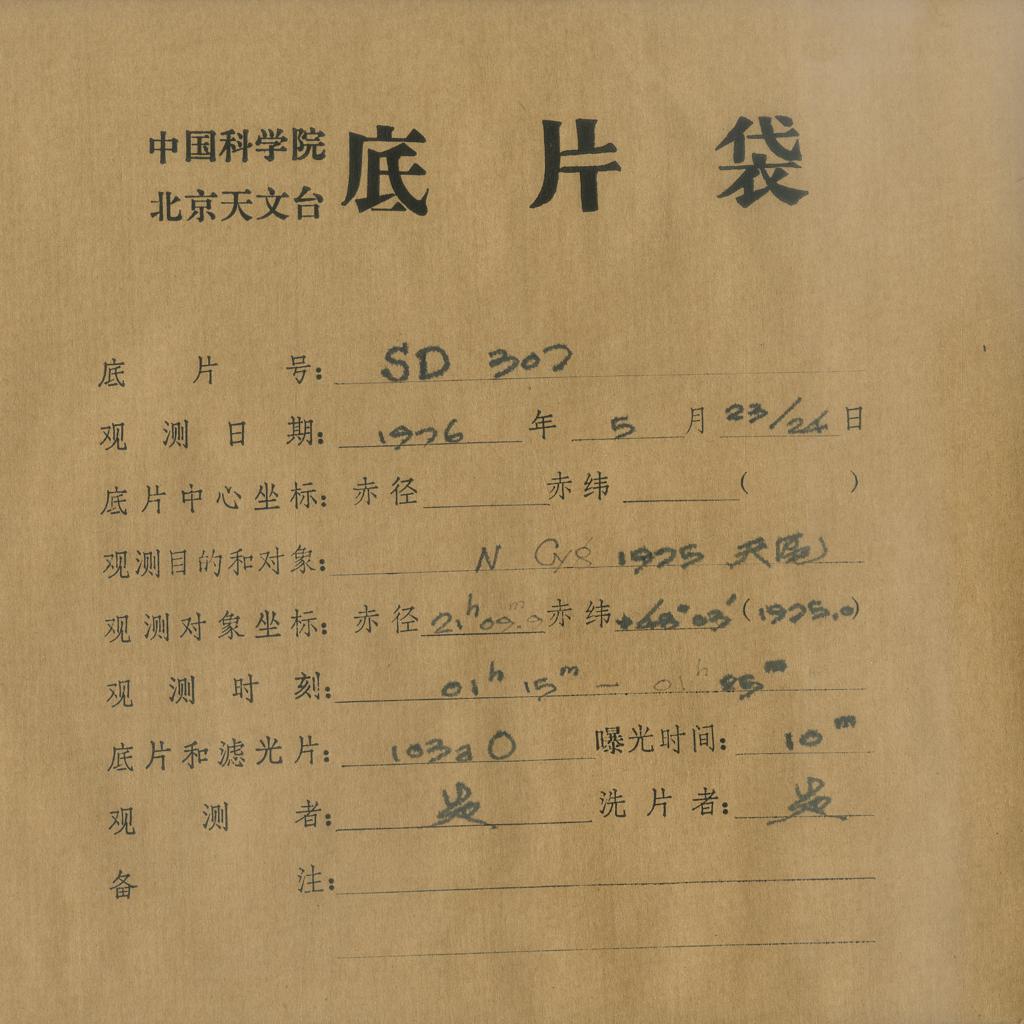 中国科学院
北京天文台
底片袋
底片号: SD 307
观测日期: 1976年 5月 23/24日
底片中心坐标: 赤径 赤纬 ( )
观测目的和对象: N Cyg 1975 天阁
观测对象坐标: 赤径 21h09m.0 赤纬 +48°03′ (1975.0)
观测时刻: 01h 15m — 01h 25m
底片和滤光片: 103aO 曝光时间: 10m
观测者: 洗片者:
备注: